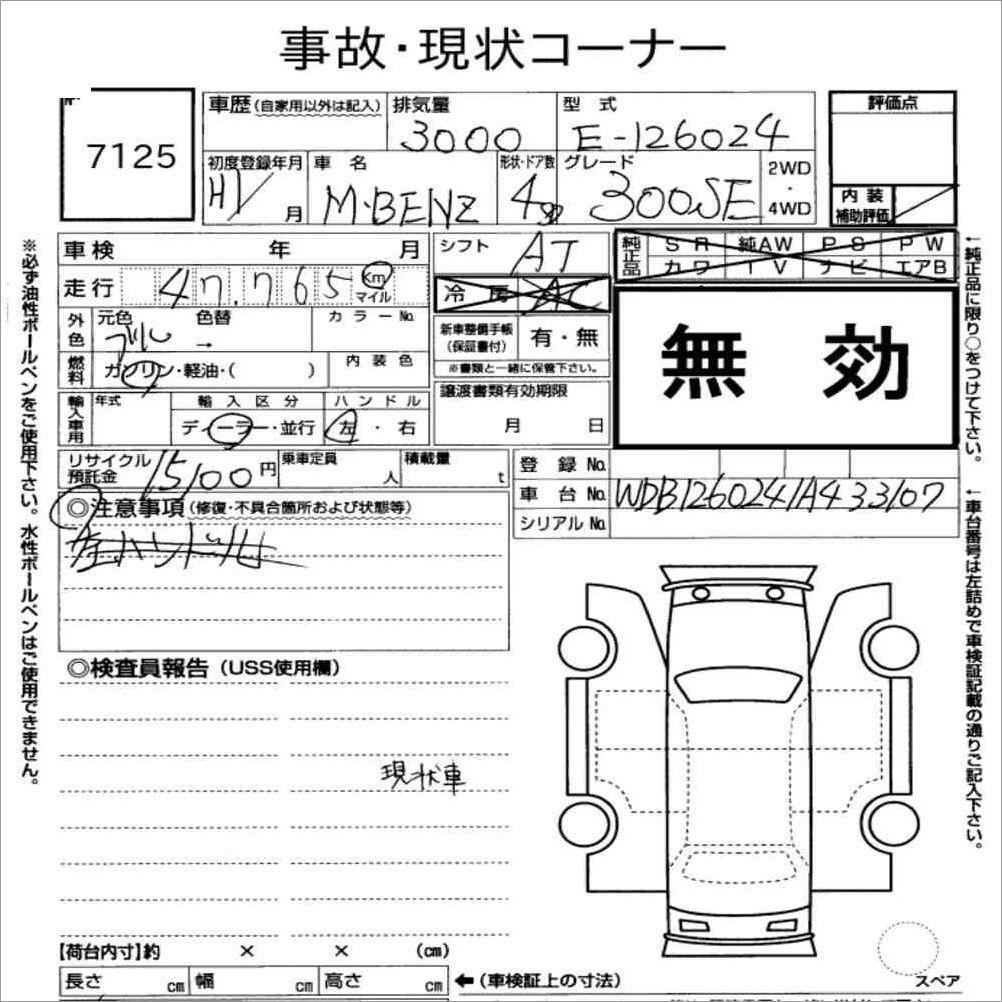 事故・現状コーナー
7125
車歴(自家用以外は記入)
排気量
3000
型 式
E-126024
評価点
初度登録年月
H1/ 月
車 名
M・BENZ
形状・ドア数
4
グレード
300SE
2WD
・
4WD
内装
補助評価
車検 年 月
シフト
AT
純正品
SR 純AW PS PW
カワ TV ナビ エアB
走行 47.765 Km
マイル
冷房 AC
外色
元色 色替
ブルー →
カラーNo.
新車整備手帳
(保証書付)
有・無
※書類と一緒に保管下さい。
無 効
燃料
ガソリン・軽油・( )
内装色
輸入車用
年式
輸入区分
ディーラー・並行
ハンドル
左・右
譲渡書類有効期限
月 日
リサイクル
預託金
15100円
乗車定員
人
積載量
t
登録No.
車台No. WDB1260241A433107
シリアルNo.
◎注意事項(修復・不具合箇所および状態等)
左ハンドル
◎検査員報告(USS使用欄)
現状車
【荷台内寸】約 × × (cm)
長さ cm 幅 cm 高さ cm ←(車検証上の寸法)
スペア
※必ず油性ボールペンをご使用下さい。水性ボールペンはご使用できません。
←純正品に限り○をつけて下さい。
←車台番号は左詰めで車検証記載の通りご記入下さい。